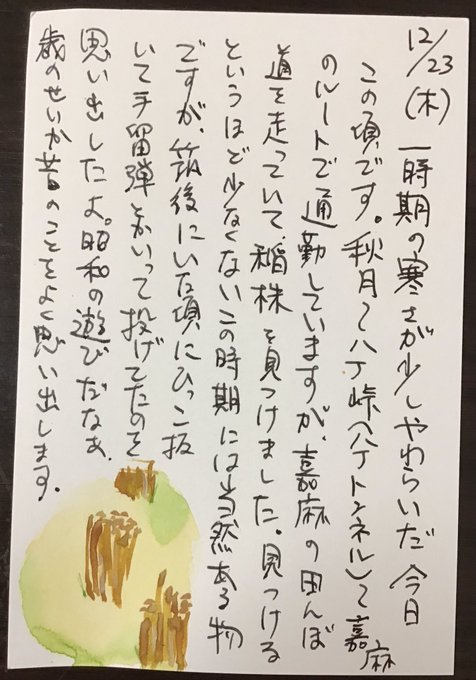 12/23(木) 一時期の寒さが少しやわらいだ今日
この頃です。秋月〜八丁峠(八丁トンネル)〜嘉麻
のルートで通勤していますが、嘉麻の田んぼ
道を走っていて、稲株を見つけました。見つける
というほど少なくないこの時期には当然ある物
ですが、筑後にいた頃にひっこ抜
いて手留弾とかいって投げてたのを
思い出したよ。昭和の遊びだなぁ、
歳のせいか昔のことをよく思い出します。